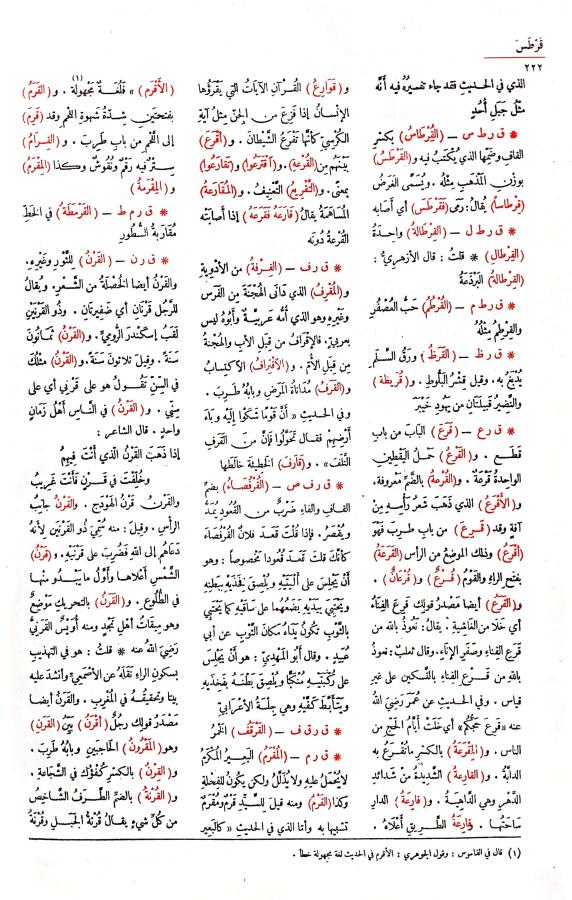 قَرْطَسَ
٢٢٢
الذي في الحديثِ فقد جاء تفسيرُهُ فيه أنَّهُ
مثلُ جبلِ أُحُدٍ
* ق ر ط س – (القِرْطاسُ) بكسرِ
القافِ وضَمِّها الذي يُكْتَبُ فيه و(القَرْطَسُ)
بوزنِ المَذْهَبِ مِثْلُهُ. ويُسَمَّى الغَرَضُ
(قِرْطاساً) يُقالُ: رَمَى (فَقَرْطَسَ) أي أصابَه
* ق ر ط ل – (القِرْطالةُ) واحِدةُ
(القِرْطالِ) * قلتُ: قال الأزهريُّ:
(القِرْطالةُ) البَرْذَعَةُ
* ق ر ط م – (القِرْطِمُ) حَبُّ العُصْفُرِ
والقُرْطُمُ مِثْلُهُ
* ق ر ظ – (القَرَظُ) وَرَقُ السَّلَمِ
يُدْبَغُ به. وقيل قِشْرُ البَلُّوطِ. و(قُرَيظة)
والنَّضِيرُ قَبيلتانِ من يَهودِ خَيْبَرَ
* ق ر ع – (قَرَعَ) البابَ من بابِ
قَطَع. و(القَرْعُ) حَمْلُ اليَقْطِينِ
الواحِدةُ قَرْعَةٌ. و(القُرْعَةُ) بالضمِّ معروفةٌ.
و(الأَقْرَعُ) الذي ذَهَبَ شَعْرُ رأسِهِ مِنْ
آفةٍ وقد (قَرِعَ) من بابِ طرِبَ فهو
(أقرعُ) وذلك الموضعُ من الرأسِ (القَرَعَةُ)
بفتحِ الراءِ والقَوْمُ (قُرْعٌ) و(قُرْعانٌ).
و(القَرَعُ) أيضا مَصْدرُ قولِك قَرِعَ الفِناءُ
أي خَلَا مِن الغاشِيةِ. يقالُ: نَعُوذُ بالله من
قَرَعِ الفِناءِ وصَفَرِ الإناءِ. وقال ثعلبٌ: نعوذُ
بالله من قَرْعِ الفِناءِ بالتَّسكينِ على غيرِ
قياسٍ. وفي الحديثِ عن عُمَرَ رَضِيَ اللهُ
عنه «قَرِعَ حَجُّكُم» أي خَلَتْ أيامُ الحجِّ من
الناسِ. و(المِقْرَعةُ) بالكسرِ ما تُقْرَعُ به
الدابَّةُ. و(القارِعةُ) الشديدةُ مِنْ شدائدِ
الدَّهْرِ وهي الدَّاهِيَةُ. و(قارعةُ) الدارِ
سَاحَتُها. و(قارِعَةُ) الطَّرِيقِ أعْلَاهُ.
و(قوارِعُ) القُرْآنِ الآياتُ التي يَقْرَؤُها
الإنسانُ إذا فَزِعَ من الجِنِّ مثلُ آيةِ
الكُرْسِيِّ كأنَّها تَقْرَعُ الشَّيْطانَ. و(أقْرَعَ)
بَيْنَهُمِ مِنَ (القُرْعةِ). و(أقْتَرَعوا) و(تَقَارَعُوا)
بمعنًى. و(التَّقْرِيعُ) التَّعْنيفُ. و(المُقارَعةُ)
المُسَاهَمَةُ يقالُ (قارَعَهُ فقَرَعَهُ) إذا أصابَتْه
القُرْعَةُ دُونَه
* ق ر ف – (القِرْفةُ) من الأدْوِيةِ
و(المُقْرِفُ) الذي دانَى الهُجْنَةَ مِنَ الفَرَسِ
وغَيْرِهِ وهو الذي أُمُّه عربيةٌ وأبُوهُ ليس
بعربيٍّ. فالإقرافُ من قِبَلِ الأبِ والهُجْنَةُ
مِن قِبَلِ الأُمِّ. و(الأقْتِرافُ) الاكتسابُ
و(القَرَفُ) مُدَاناةُ المَرَضِ وبابُهُ طَرِبَ.
وفي الحديثِ «أنَّ قوماً شَكَوْا إليْه وَباءَ
أرْضِهِم فقال تَحوَّلُوا فإنَّ مِن القَرَفِ
التَّلَفَ». و(قارَفَ) الخَطِيئَةَ خالَطَها
* ق ر ف ص – (القُرْفُصَاءُ) بضمِّ
القافِ والفاءِ ضَرْبٌ من القُعودِ يُمَدُّ
ويُقْصَرُ. فإذا قُلتَ قَعَدَ فلانٌ القُرْفُصَاءَ
كأنَّك قلتَ قعَدَ قُعوداً مخصوصاً: وهو
أنْ يجلِسَ على ألْيَتَيْهِ ويُلْصِقَ فَخِذَيْهِ ببطنِه
ويَحْتَبِيَ بيَدَيْهِ يضَعُهُما على ساقَيْهِ كما يَحْتَبِي
بالثَّوْبِ تكُونُ يَدَاه مكانَ الثَّوبِ عن أبي
عُبَيدٍ. وقال أبو المَهْدِيِّ: هو أنْ يَجْلِسَ
على رُكْبَتَيْهِ مُتَّكِئاً ويُلْصِقَ بَطْنَهُ بفَخِذَيْهِ
ويَتَأَبَّطَ كَفَّيْهِ وهي جِلْسَةُ الأعْرابيِّ
* ق ر ق ف – (القَرْقَفُ) الخَمْرُ
* ق ر م – (المُقْرَمُ) البعيرُ المُكْرَمُ
لا يُحْمَلُ عليه ولا يُذَلَّلُ ولكن يكُونُ للفِحْلةِ
وكذا (القَرْمُ) ومنه قيل للسَّيِّدِ قَرْمٌ ومُقْرَمٌ
تشبيها به وأمّا الذي في الحديثِ «كالبَعِيرِ
(الأقْرَمِ)» فَلُغَةٌ مَجْهُولَةٌ (١). و(القَرَمُ)
بفتحتينِ شِدَّةُ شهوةِ اللحْمِ وقد (قَرِمَ)
إلى اللَّحْمِ من بابِ طَرِبَ. و(القِرَامُ)
سِتْرٌ فيه رَقْمٌ ونُقُوشٌ وكذا (المِقْرَمُ)
و(المِقْرَمةُ)
* ق ر م ط – (القَرْمَطَةُ) في الخَطِّ
مُقَارَبةُ السُّطُورِ
* ق ر ن – (القَرْنُ) للثَّوْرِ وغَيْرِهِ.
والقَرْنُ أيضا الخُصْلةُ من الشَّعْرِ. ويُقالُ
للرَّجُلِ قَرْنَانِ أي ضَفِيرَتانِ. وذُو القَرْنَيْنِ
لَقَبُ إسْكَندَرَ الرُّومِيِّ. و(القَرْنُ) ثمانُونَ
سَنَةً. وقيلَ ثلاثون سَنَةً. و(القَرْنُ) مثلُكَ
في السِّنِّ تَقُولُ هو على قَرْنِي أي على
سِنِّي. و(القَرْنُ) في الناسِ أهْلُ زمانٍ
واحدٍ. قال الشاعر:
إذا ذَهَبَ القَرْنُ الَّذي أنْتَ فِيهِمُ
وخُلِّفْتَ في قَرْنٍ فأنْتَ غَرِيبُ
والقَرْنُ قَرْنُ الهَوْدَجِ. والقَرْنُ جانِبُ
الرأسِ. وقيلَ: منه سُمِّيَ ذُو القَرْنَيْنِ لأنَّهُ
دَعَاهُم إلى اللهِ فضَرَبُوهُ على قَرْنَيْهِ. و(قَرْنُ)
الشَّمْسِ أعْلاها وأوَّلُ ما يَبْدُو منْها
في الطُّلوعِ. و(القَرَنُ) بالتحريكِ مَوْضِعٌ
وهو مِيقاتُ أهْلِ نَجْدٍ ومنه أُوَيْسٌ القَرَنيُّ
رَضِيَ اللهُ عنه * قلتُ: هو في التهذيبِ
بسكونِ الراءِ نَقَلَهُ عن الأصْمَعيِّ وأنشدَ عليه
بيتا وتحقيقُهُ في المُغْرِبِ. والقَرَنُ أيضا
مَصْدَرُ قولِك رجُلٌ (أقْرَنُ) بَيِّنُ (القَرَنِ)
وهو (المَقْرُونُ) الحاجِبَيْنِ وبابُه طَرِبَ.
و(القِرْنُ) بالكسرِ كُفْؤُك في الشَّجاعةِ.
و(القُرْنَةُ) بالضمِّ الطَّرَفُ الشاخِصُ
من كُلِّ شيءٍ يقالُ قُرْنَةُ الجَبَلِ وقُرْنَةُ
(١) قال في القاموس: وقول الجوهري: الأقرم في الحديث لغة مجهولة خطأ.